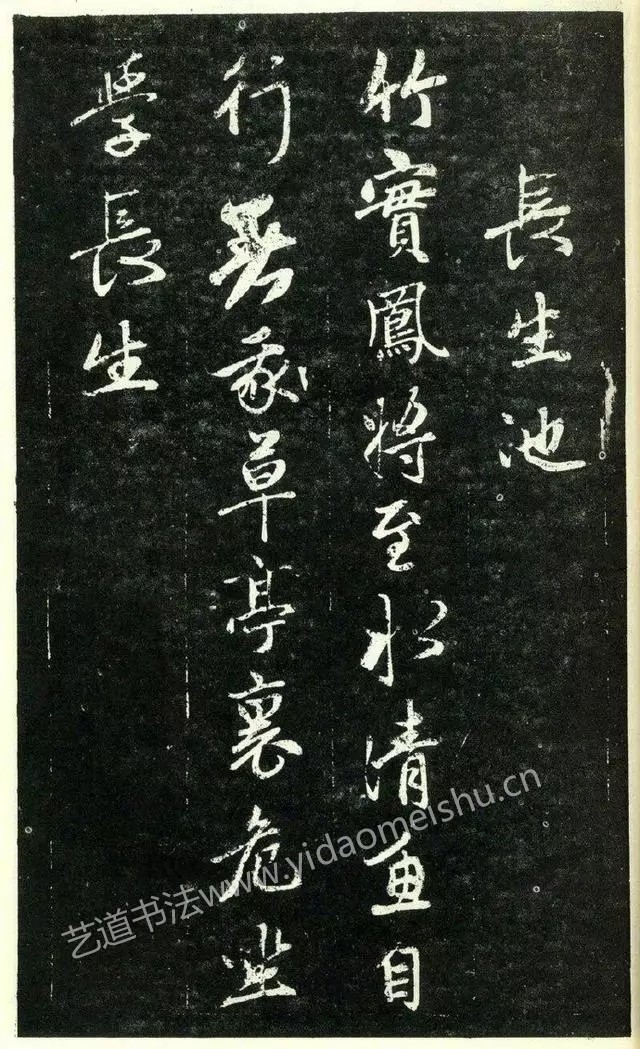 長生池
竹實鳳將至水清魚自
行草亭裏危坐
學長生
艺道书法www.yidaomeishu.cn